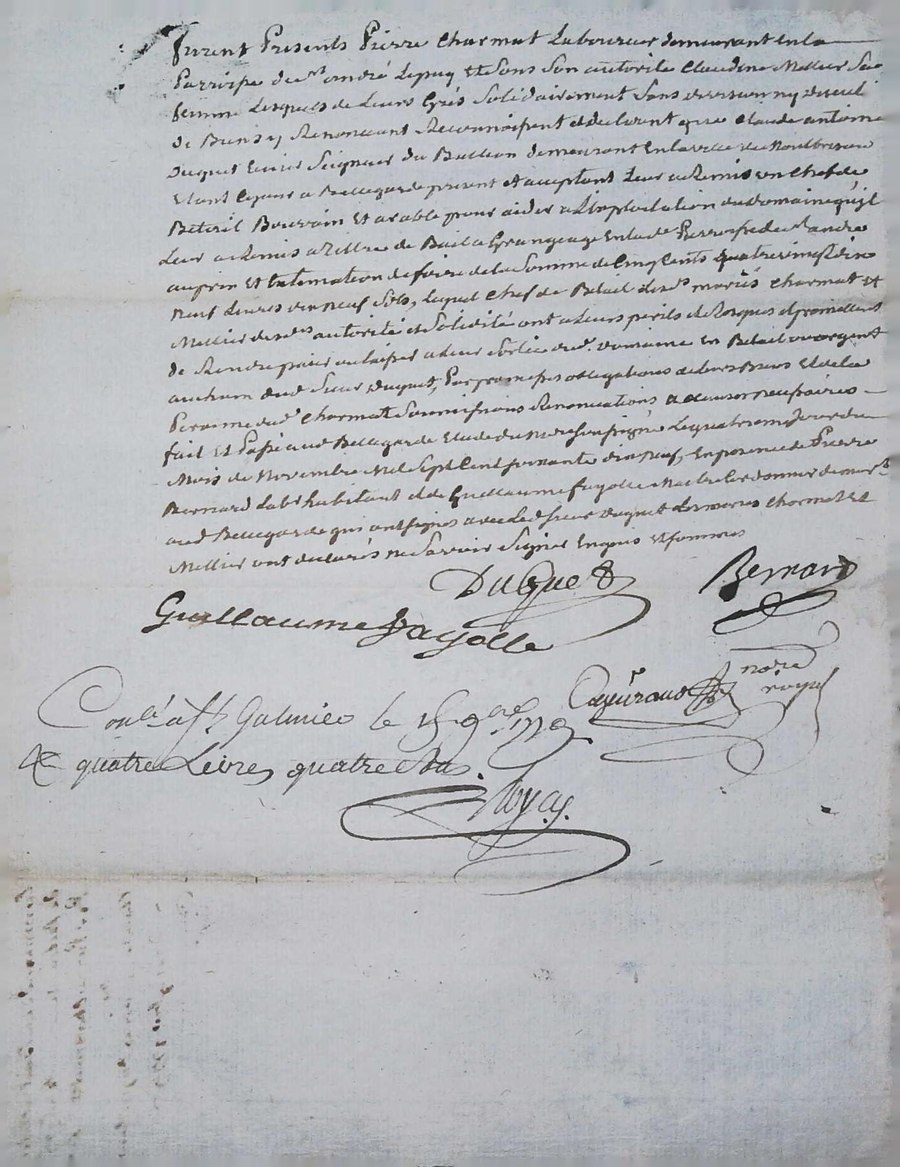 furent Presents Pierre Charmat Laboureur demeurant En la
Parroisse de st andré Lepuy Et Sous Son autorité Claudine Mellier Sa
femme Lesquels de Leurs Grés Solidairement Sans division ny
de Biens y Renoncant Reconnoissent et declarent que Claude antoine
Duguet Ecuier Seigneur du Bullion demeurant En la ville de Montbrison
Etant Ce jour a Bellegarde present et acceptant Leur a Remis un Chef de
Betail Bouvain Et arable pour aider a L'Exploitation du Domaine qu'il
Leur a Remis a Tittre de Bail a Grangeage En lade Parroisse de st andre
au prix Et Estimation de foire de la Somme de Cinq Cents quatrevingt dix
neuf Livres dix neuf Sols, lequel Chef de Betail Lesds mariés Charmat Et
Mellier desds autorité et Solidité ont a Leurs perils et Risques et promettent
de Rendre paier ou laisser a Leur Sortie dud. Domaine En Betail ou argent
au choix dud Sieur Duguet, Par promesses obligations de Leurs Biens Et de la
Personne dud Charmat Soumissions Renonciations
fait Et Passé aud Bellegarde Etude du nore Soussigné Le quatrieme Jour du
Mois de Novembre Mil Sept Cent soixante dix neuf, En presence de Pierre
Bernard habitant et de Guillaume fayolle Maitre Cordonnier demts
aud Bellegarde qui ont Signés avec Led sieur Duguet Les mariés Charmat Et
Mellier ont declarés ne Savoir Signer Enquis Et sommés
Duguet Bernard
Guillaume fayolle
nore
royal
Conlé a St Galmier le 15 9bre 1779
quatre Livres quatre Sols.